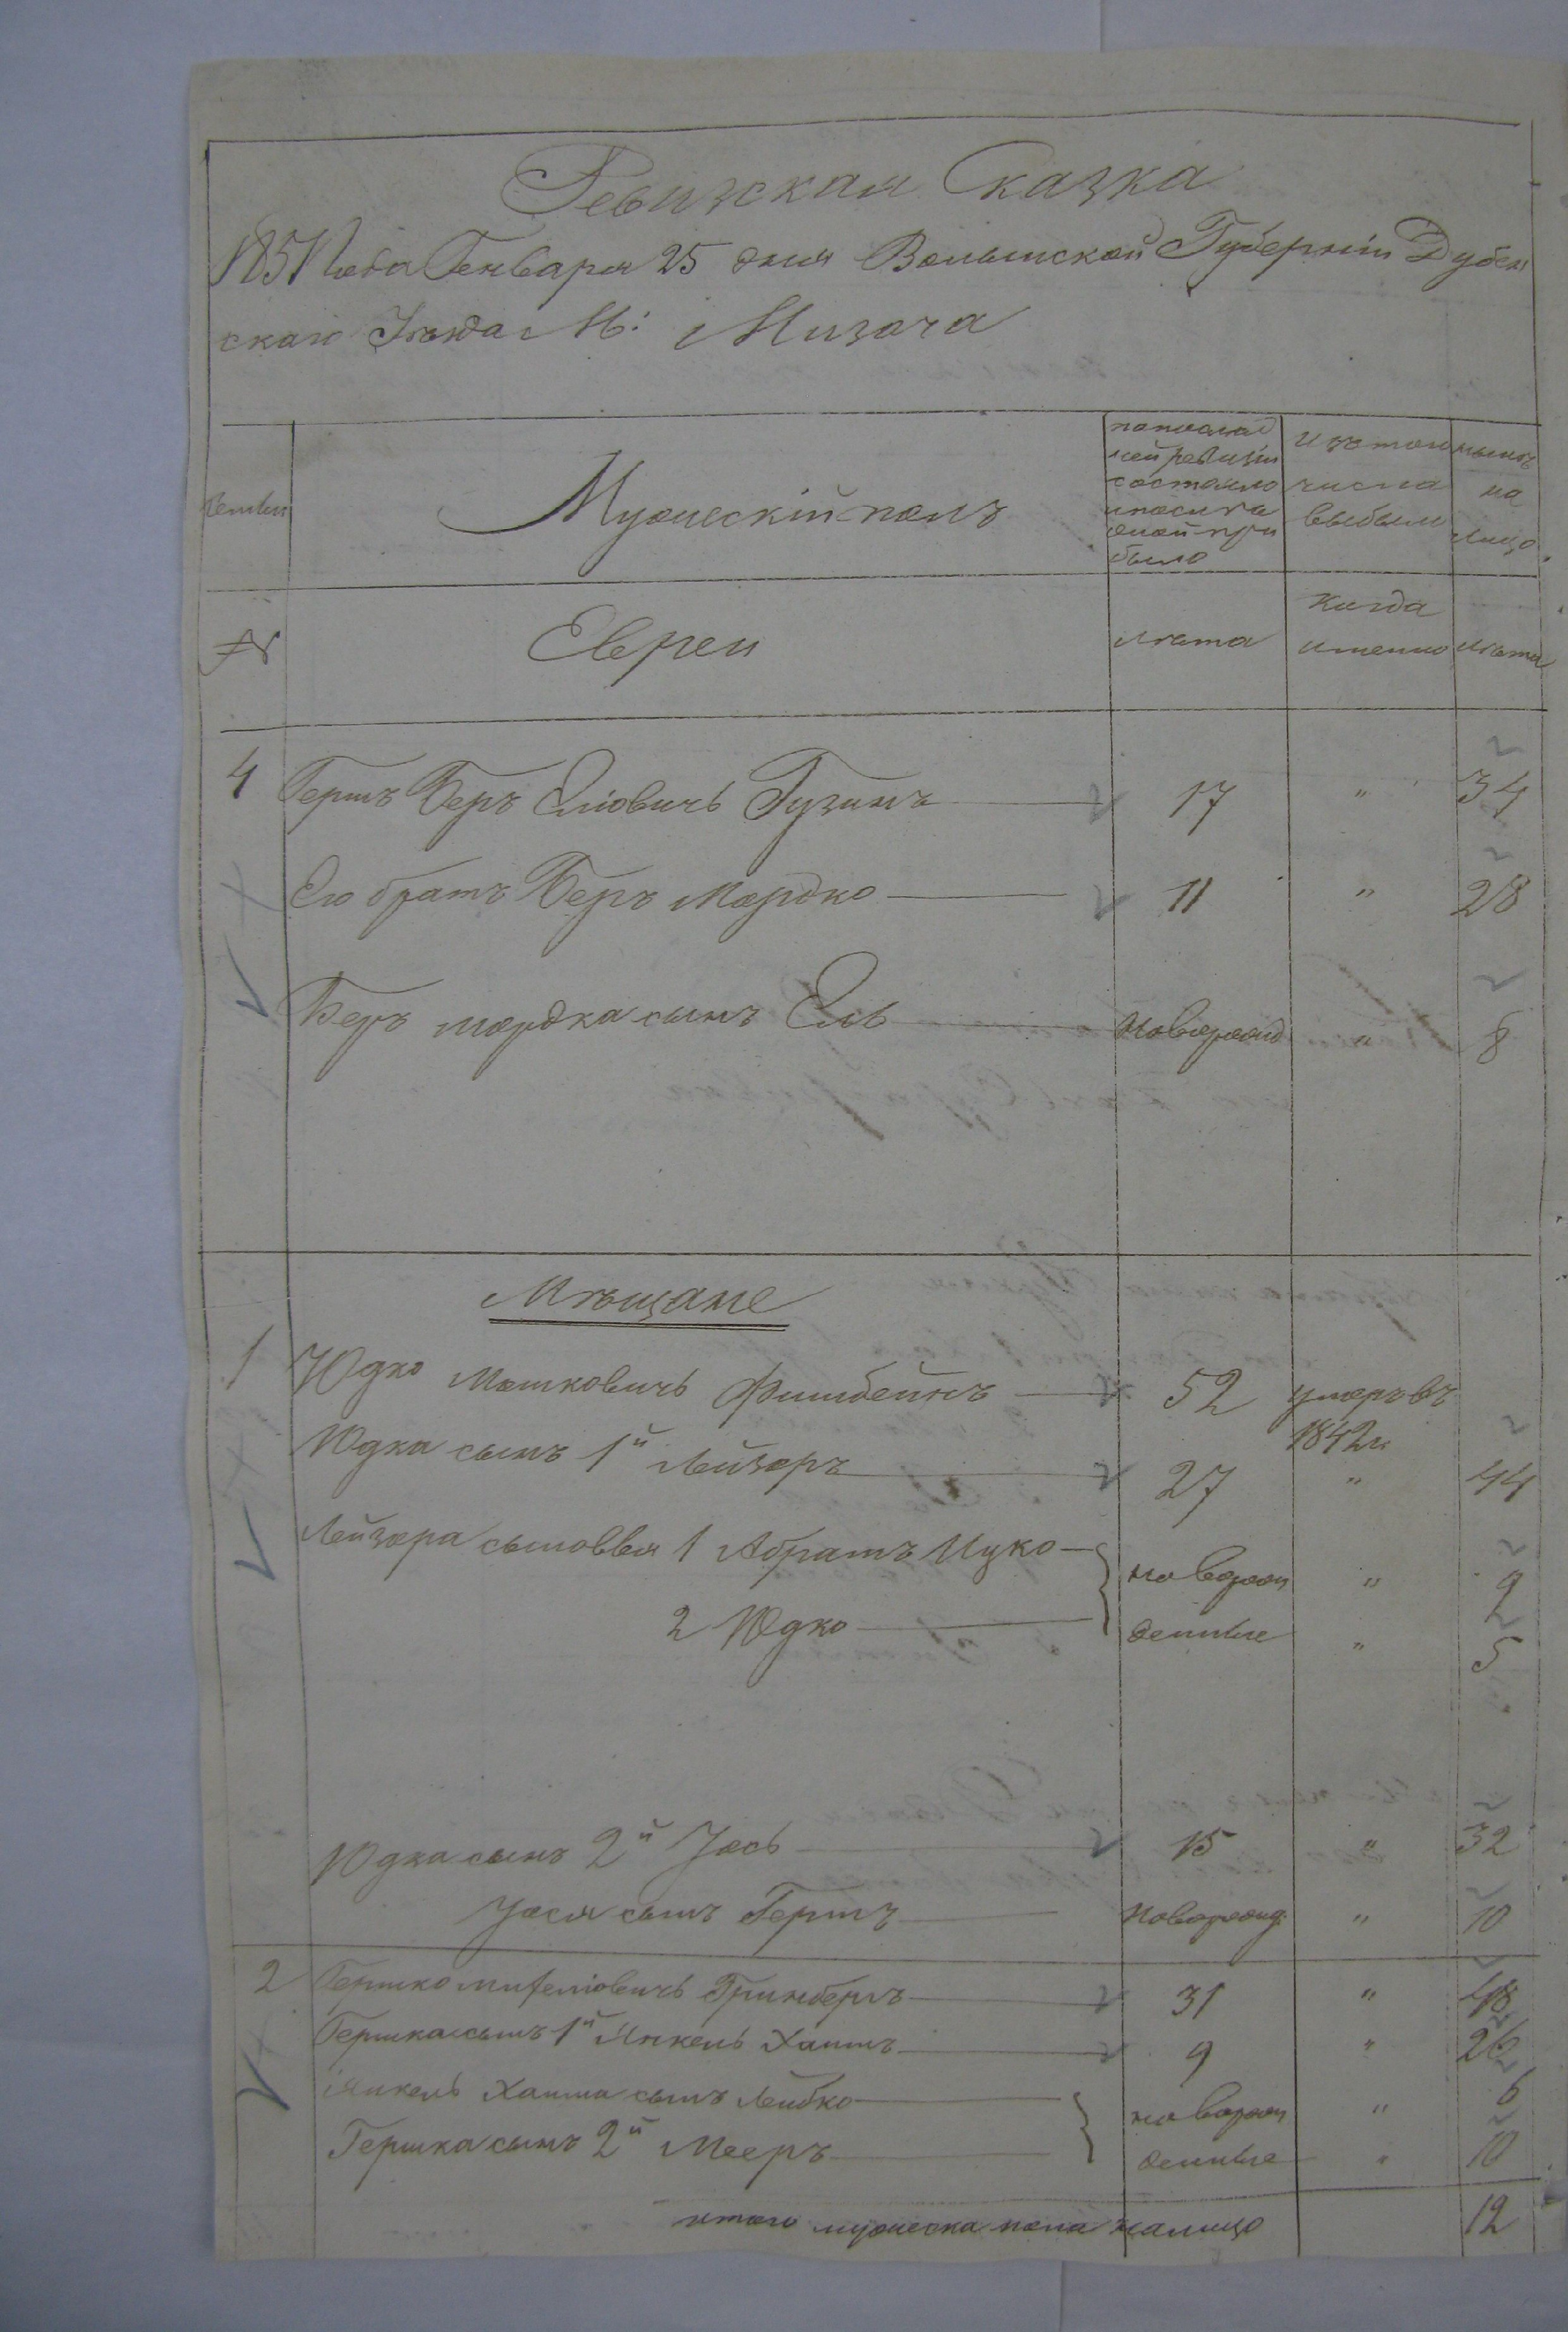 Ревизская Сказка
1851 года Генваря 25 дня Волынской Губернiи Дубен
скаго Уезда М: Мизоча
Мужескiй полъ
по послед
ней ревизiи
состояло
и после та
оной при
было
Изъ того
числа
выбыли
ныне
на
лицо
№
Евреи
лета
Когда
именно
лета
4 Гершъ Беръ Елiовичь Гузинъ 17 " 34
Его братъ Беръ Мордко 11 " 28
Беръ мордка сынъ Ель Новорожд " 8
Мѣщане
1 Юдко Мошковичь Фишбейнъ 52 умеръ въ
1842г.
Юдка сынъ 1й Лейзоръ 27 " 44
Лейзора сыновья 1 Абрамъ Ицко новорож " 9
2 Юдко денные " 5
Юдка сынъ 2й Iось 15 " 32
Iося сынъ Гершъ Новорожд. " 10
2 Гершко Гринбергъ 31 " 48
Гершка сынъ 1й Янкель Хаимъ 9 " 26
Янкель Хаима сынъ Лейбко новорож " 6
Гершка сынъ 2й Мееръ денные " 10
итого мужеска пола налицо 12